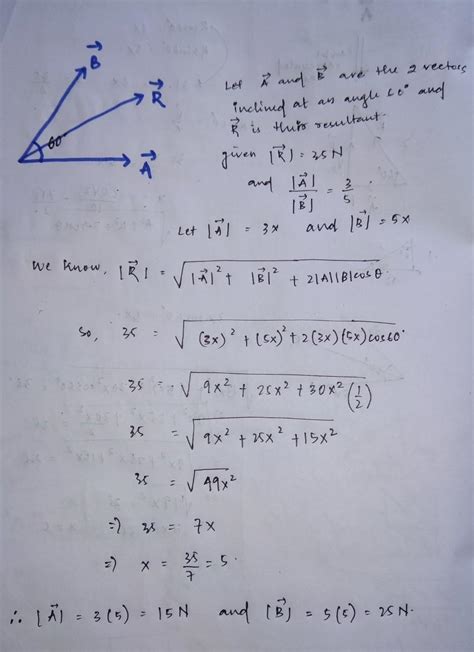 B⃗
R⃗
60°
A⃗
Let A⃗ and B⃗ are the 2 vectors
inclined at an angle 60° and
R⃗ is their resultant.
given |R⃗| = 35 N
and |A⃗| / |B⃗| = 3/5.
Let |A⃗| = 3x and |B⃗| = 5x
We know, |R⃗| = √(|A⃗|² + |B⃗|² + 2|A||B|cosθ)
So, 35 = √((3x)² + (5x)² + 2(3x)(5x)cos60°)
35 = √(9x² + 25x² + 30x² (1/2))
35 = √(9x² + 25x² + 15x²)
35 = √(49x²)
⇒ 35 = 7x
⇒ x = 35/7 = 5.
∴ |A⃗| = 3(5) = 15 N and |B⃗| = 5(5) = 25 N.